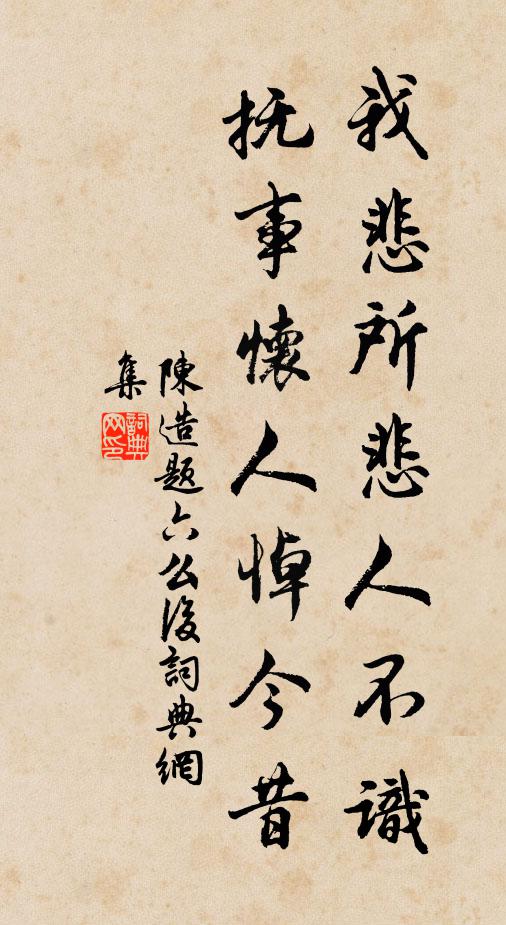 我悲所悲人不識
抚事懷人悼今昔
陳造題六么後詞典網
集
詞典网印